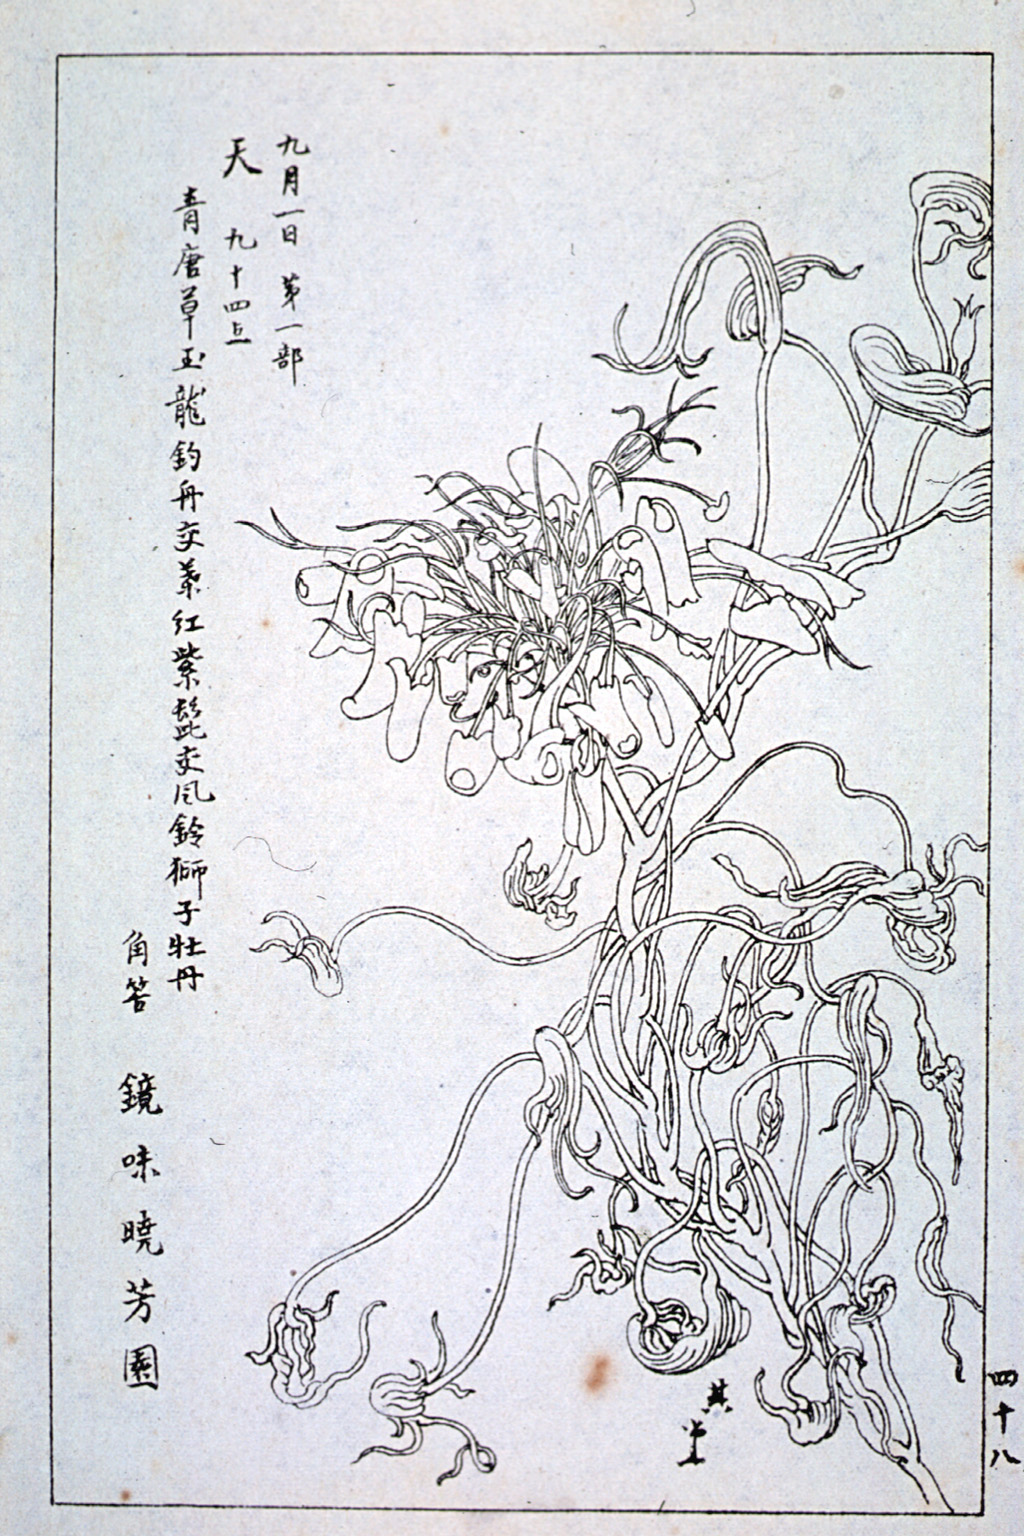 九月一日 第一部
天 九十四点
青唐草玉龍鈎舟交葉紅紫髭交風鈴獅子牡丹
角筈 鏡味曉芳園
其堂
四十八